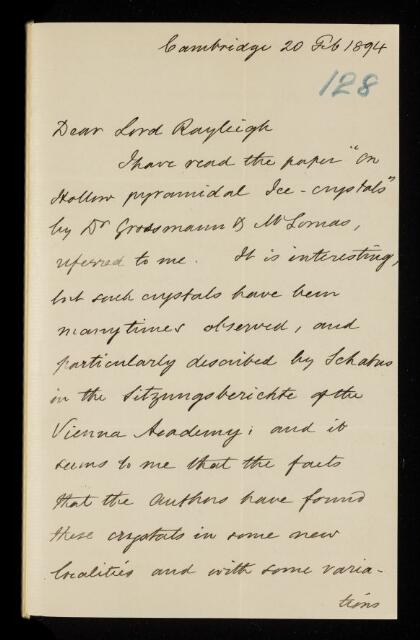 Cambridge 20 Feb 1894
128
Dear Lord Rayleigh
I have read the paper "on
Hollow pyramidal Ice-crystals"
by Dr Grossmann & Mr Lomas,
referred to me. It is interesting,
but such crystals have been
many times observed, and
particularly described by Schabus
in the Sitzungsberichte of the
Vienna Academy; and it
seems to me that the facts
that the authors have found
these crystals in some new
localities and with some varia-
tions